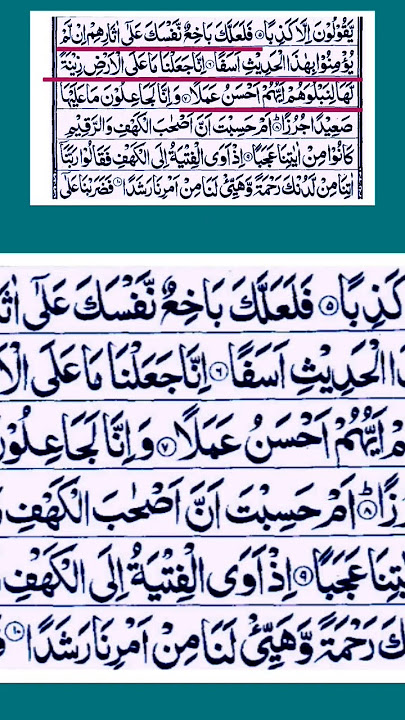 يَّقُوْلُوْنَ اِلَّا كَذِبًا ۝۵ فَلَعَلَّكَ بَاخِعٌ نَّفْسَكَ عَلٰۤى اٰثَارِهِمْ اِنْ لَّمْ
يُؤْمِنُوْا بِهٰذَا الْحَدِيْثِ اَسَفًا ۝۶ اِنَّا جَعَلْنَا مَا عَلَى الْاَرْضِ زِيْنَةً
لَّهَا لِنَبْلُوَهُمْ اَيُّهُمْ اَحْسَنُ عَمَلًا ۝۷ وَ اِنَّا لَجَاعِلُوْنَ مَا عَلَيْهَا
صَعِيْدًا جُرُزًا ۝۸ؕ اَمْ حَسِبْتَ اَنَّ اَصْحٰبَ الْكَهْفِ وَ الرَّقِيْمِ
كَانُوْا مِنْ اٰيٰتِنَا عَجَبًا ۝۹ اِذْ اَوَى الْفِتْيَةُ اِلَى الْكَهْفِ فَقَالُوْا رَبَّنَاۤ
اٰتِنَا مِنْ لَّدُنْكَ رَحْمَةً وَّ هَيِّئْ لَنَا مِنْ اَمْرِنَا رَشَدًا ۝۱۰ فَضَرَبْنَا عَلٰۤى
كَذِبًا ۝۵ فَلَعَلَّكَ بَاخِعٌ نَّفْسَكَ عَلٰۤى اٰثَ
الْحَدِيْثِ اَسَفًا ۝۶ اِنَّا جَعَلْنَا مَا عَلَى الْاَ
اَيُّهُمْ اَحْسَنُ عَمَلًا ۝۷ وَ اِنَّا لَجَاعِلُوْنَ
رُزًا ۝۸ؕ اَمْ حَسِبْتَ اَنَّ اَصْحٰبَ الْكَهْفِ
يٰتِنَا عَجَبًا ۝۹ اِذْ اَوَى الْفِتْيَةُ اِلَى الْكَهْفِ
كَ رَحْمَةً وَّ هَيِّئْ لَنَا مِنْ اَمْرِنَا رَشَدًا ۝۱۰